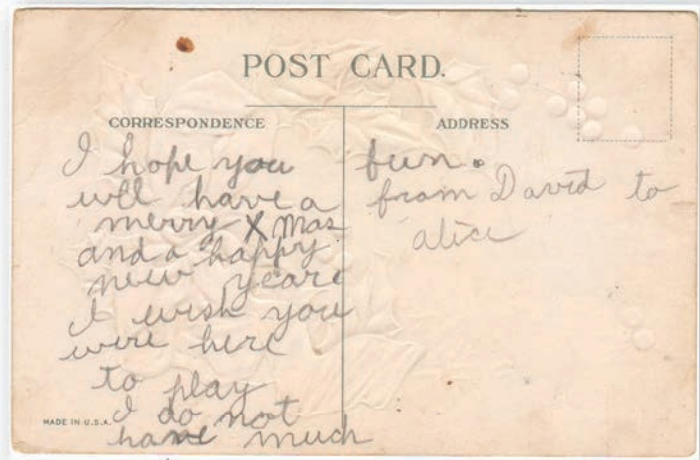 POST CARD.
CORRESPONDENCE
I hope you
will have a
merry X mas
and a happy
new year
I wish you
were here
to play
I do not
have much
MADE IN U.S.A.
ADDRESS
fun.
from David to
alice